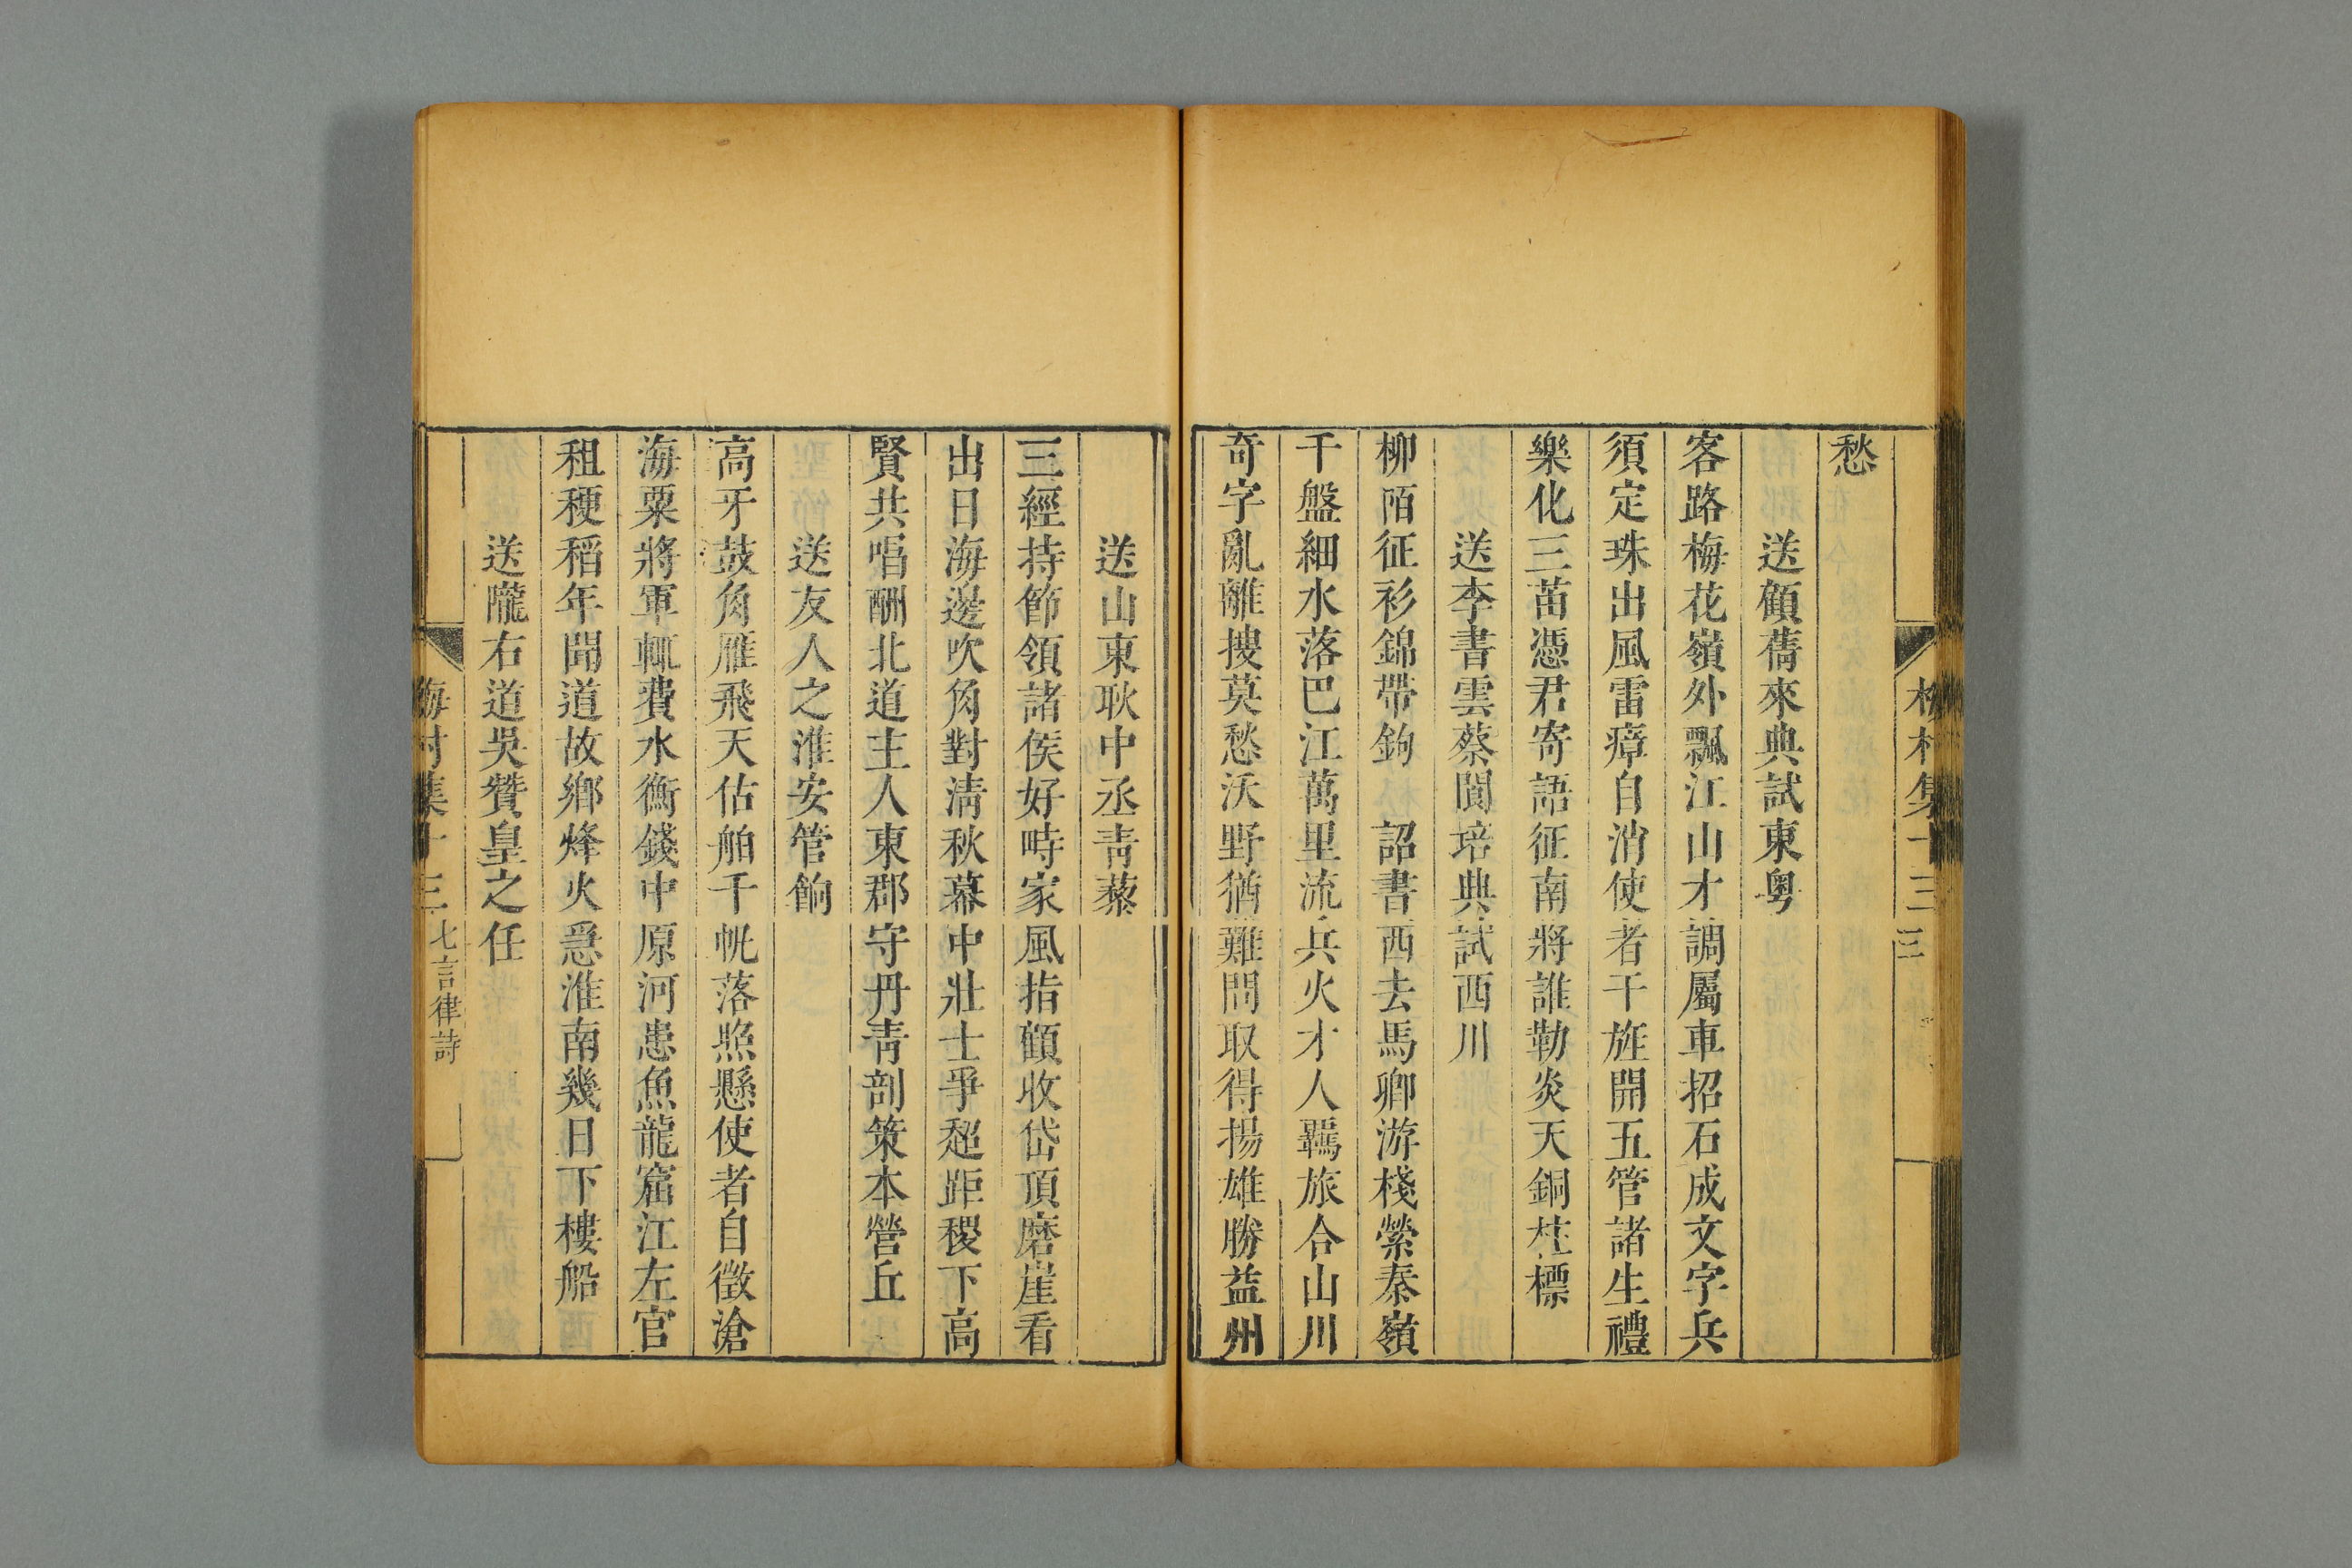 梅村集十三 三
愁
送顧蒨來典試東粤
客路梅花嶺外飄江山才調屬車招石成文字兵
須定珠出風雷瘴自消使者干旌開五管諸生禮
樂化三苗憑君寄語征南將誰勒炎天銅柱標
送李書雲蔡閬培典試西川
柳陌征衫錦帶鉤 詔書西去馬卿游棧縈秦嶺
千盤細水落巴江萬里流兵火才人羈旅合山川
奇字亂離搜莫愁沃野猶難問取得揚雄勝益州
送山東耿中丞青藜
三經持節領諸侯好畤家風指顧收岱頂磨崖看
出日海邊吹角對清秋幕中壯士爭超距稷下高
賢共唱酬北道主人東郡守丹青剖策本營丘
送友人之淮安管餉
高牙鼓角雁飛天估舶千帆落照懸使者自徵滄
海粟將軍輒費水衡錢中原河患魚龍窟江左官
租稉稻年聞道故鄉烽火急淮南幾日下樓船
送隴右道吳贊皇之任
梅村集十三 七言律詩